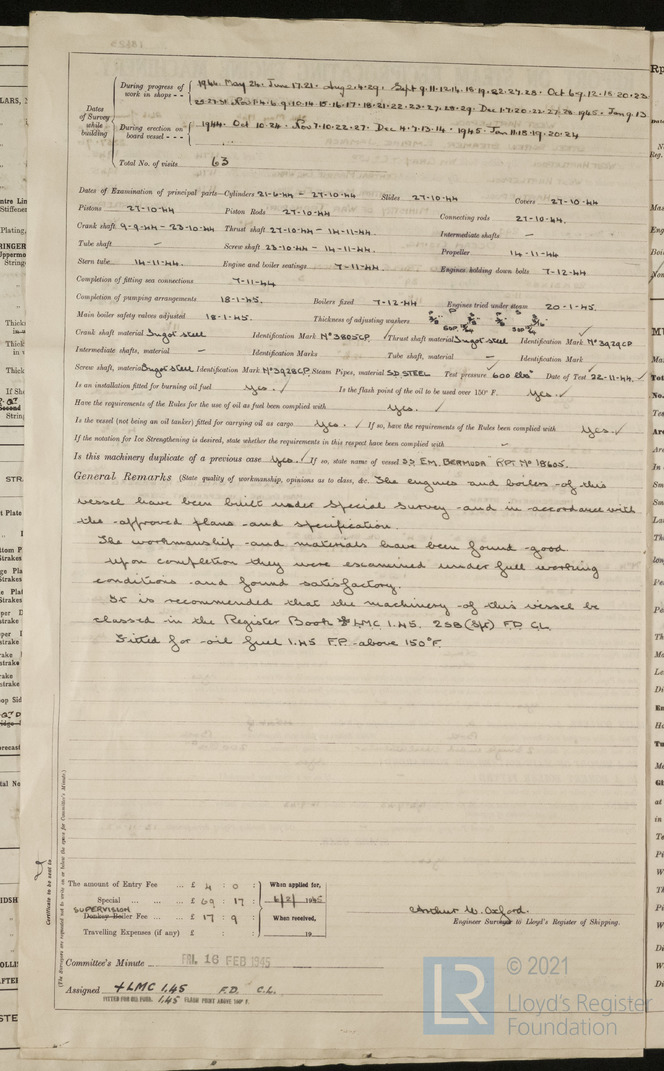 During progress of work in shops - - 1944 May 24 June 17.21 Aug 2.4.29 Sept 9.11.12.14.18.19.22.27.28 Oct 6.9.12.18.20.23
Nov 1.4.6.9.10.14.15.16.17.18.21.22.23.27.28.29 Dec 1.7.20.22.27.28 1945 Jan 9.13
Dates of Survey while building
During erection on board vessel - - - 1944 Oct 10.24 Nov 7.10.22.27 Dec 4.7.13.14 1945 Jan 11.18.19.20.24
Total No. of visits 63
Dates of Examination of principal parts—Cylinders 21-6-44 - 27-10-44 Slides 27-10-44 Covers 27-10-44
Pistons 27-10-44 Piston Rods 27-10-44 Connecting rods 27-10-44.
Crank shaft 9-9-44 - 23-10-44 Thrust shaft 27-10-44 - 14-11-44. Intermediate shafts —
Tube shaft — Screw shaft 23-10-44 - 14-11-44. Propeller 14-11-44
Stern tube 14-11-44. Engine and boiler seatings 7-11-44. Engines holding down bolts 7-12-44
Completion of fitting sea connections 7-11-44
Completion of pumping arrangements 18-1-45. Boilers fixed 7-12-44 Engines tried under steam 20-1-45.
Main boiler safety valves adjusted 18-1-45. Thickness of adjusting washers
Crank shaft material Ingot steel Identification Mark Nº3805CP Thrust shaft material Ingot steel Identification Mark Nº3929CP
Intermediate shafts, material — Identification Marks Tube shaft, material — Identification Mark
Screw shaft, material Ingot steel Identification Mark Nº3928CP. Steam Pipes, material SD STEEL Test pressure 600 lbs Date of Test 22-11-44.
Is an installation fitted for burning oil fuel Yes. Is the flash point of the oil to be used over 150° F. Yes.
Have the requirements of the Rules for the use of oil as fuel been complied with Yes.
Is the vessel (not being an oil tanker) fitted for carrying oil as cargo Yes. If so, have the requirements of the Rules been complied with Yes.
If the notation for Ice Strengthening is desired, state whether the requirements in this respect have been complied with —
Is this machinery duplicate of a previous case Yes. If so, state name of vessel SS Em. BERMUDA RPT Nº 18605.
General Remarks (State quality of workmanship, opinions as to class, &c. The engines and boilers of this
vessel have been built under Special Survey and in accordance with
the approved plans and specification.
The workmanship and materials have been found good.
Upon completion they were examined under full working
conditions and found satisfactory.
It is recommended that the machinery of this vessel be
classed in the Register Book +LMC 1.45. 2SB(Spt) F.D. CL.
Fitted for oil fuel 1.45 F.P. above 150°F.
Certificate to be sent to
(The Surveyors are requested not to write on or below the space for Committee's Minute.)
The amount of Entry Fee ... £ 4 : 0 : When applied for,
Special ... ... £ 69 : 17 : 6/2/ 1945
SUPERVISION
Donkey Boiler Fee ... £ 17 : 9 : When received,
Travelling Expenses (if any) £ : : 19
Arthur W. Oxford.
Engineer Surveyor to Lloyd's Register of Shipping.
Committee's Minute FRI. 16 FEB 1945
Assigned +LMC 1.45 F.D. C.L.
FITTED FOR OIL FUEL 1.45 FLASH POINT ABOVE 150° F.
© 2021
Lloyd's Register
Foundation
LR